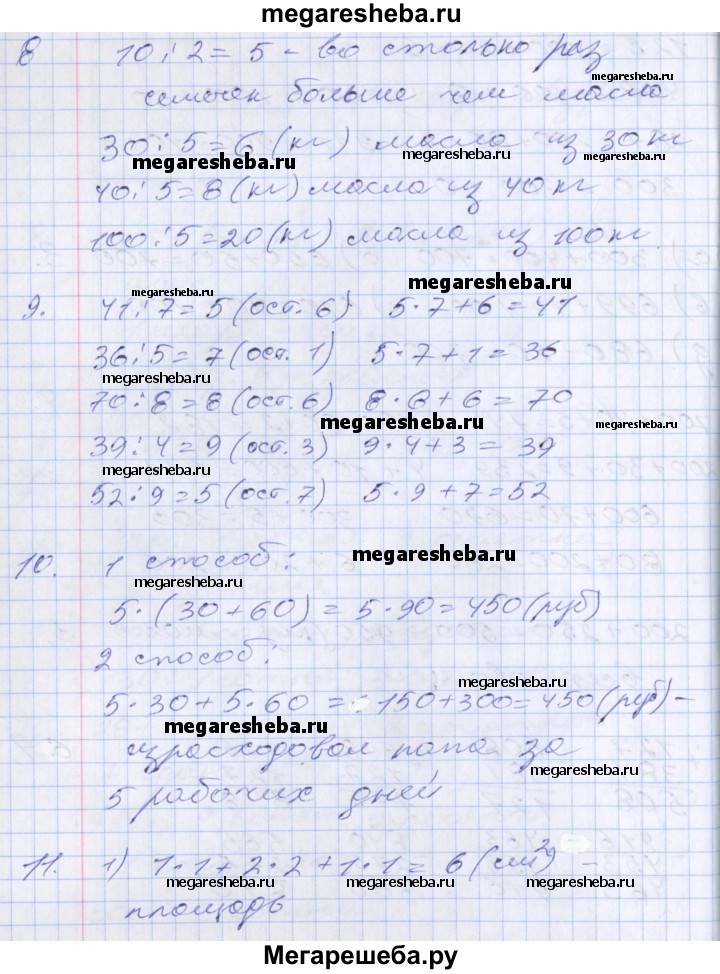 megaresheba.ru
8 10:2=5 - во столько раз
megaresheba.ru
семечек больше чем масла
30:5=6 (кг) масла из 30 кг
megaresheba.ru megaresheba.ru megaresheba.ru
40:5=8 (кг) масла из 40 кг
100:5=20 (кг) масла из 100 кг.
megaresheba.ru
9. 41:7=5 (ост. 6) 5·7+6=41
megaresheba.ru
36:5=7 (ост. 1) 5·7+1=36
megaresheba.ru
70:8=8 (ост. 6) 8·8+6=70
megaresheba.ru megaresheba.ru
39:4=9 (ост. 3) 9·4+3=39
megaresheba.ru
52:9=5 (ост. 7) 5·9+7=52
megaresheba.ru
10. 1 способ:
megaresheba.ru
5·(30+60)=5·90=450 (руб)
2 способ:
megaresheba.ru
5·30+5·60=150+300=450 (руб) -
megaresheba.ru
израсходовал папа за
megaresheba.ru
5 рабочих дней
11. 1) 1·1+2·2+1·1=6 (см²) -
megaresheba.ru megaresheba.ru megaresheba.ru
площадь
Мегарешеба.ру